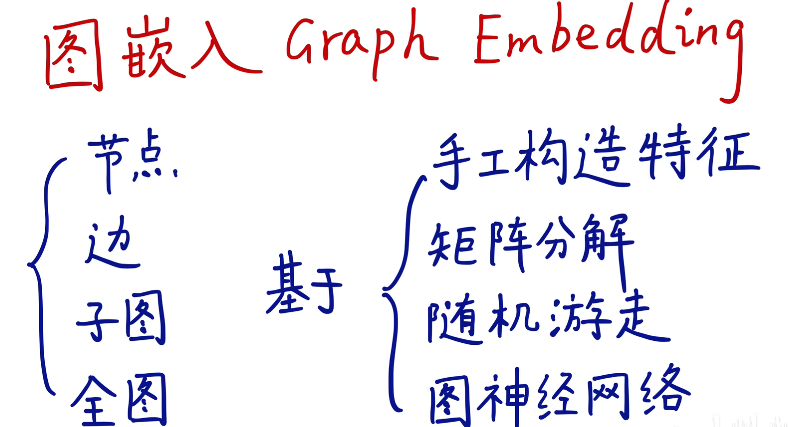 图嵌入 Graph Embedding
节点
边
子图
全图
基于
手工构造特征
矩阵分解
随机游走
图神经网络